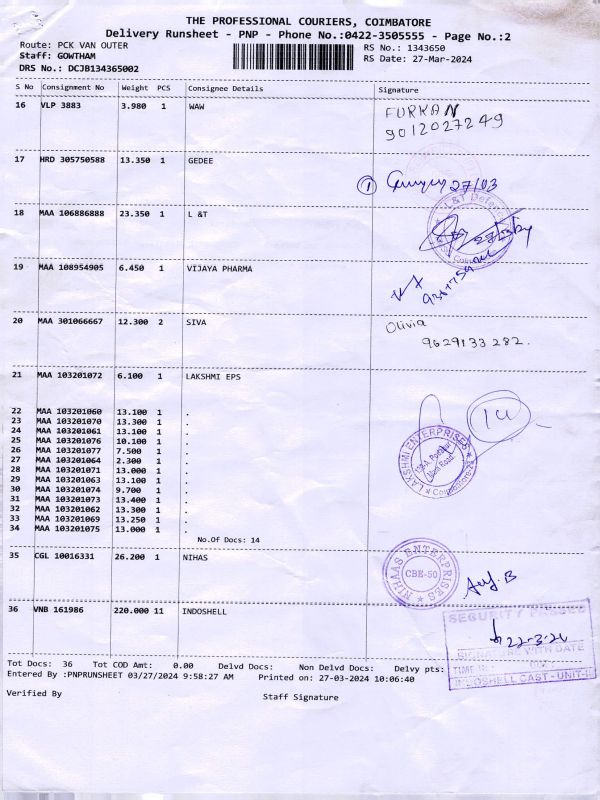 THE PROFESSIONAL COURIERS, COIMBATORE
Delivery Runsheet - PNP - Phone No.:0422-3505555 - Page No.:2
Route: PCK VAN OUTER
RS No.: 1343650
Staff: GOWTHAM
RS Date: 27-Mar-2024
DRS No.: DCJB134365002
S No Consignment No Weight PCS Consignee Details Signature
16 VLP 3883 3.980 1 WAW
FURKAN
9012027249
17 HRD 305750588 13.350 1 GEDEE
1 27/03
18 MAA 106886888 23.350 1 L &T
L&T Defence
19 MAA 108954905 6.450 1 VIJAYA PHARMA
20 MAA 301066667 12.300 2 SIVA
Olivia
9629133282.
21 MAA 103201072 6.100 1 LAKSHMI EPS
14
22 MAA 103201060 13.100 1 .
23 MAA 103201070 13.300 1 .
24 MAA 103201061 13.100 1 .
25 MAA 103201076 10.100 1 .
26 MAA 103201077 7.500 1 .
27 MAA 103201064 2.300 1 .
28 MAA 103201071 13.000 1 .
29 MAA 103201063 13.100 1 .
30 MAA 103201074 9.700 1 .
31 MAA 103201073 13.400 1 .
32 MAA 103201062 13.300 1 .
33 MAA 103201069 13.250 1 .
34 MAA 103201075 13.000 1 .
LAKSHMI ENTERPRISES
No.Of Docs: 14
35 CGL 10016331 26.200 1 NIHAS
NIHAAS ENTERPRISES
CBE-50
36 VNB 161986 220.000 11 INDOSHELL
SECURITY
SIGNATURE WITH DATE
INDOSHELL CAST - UNIT-II
Tot Docs: 36 Tot COD Amt: 0.00 Delvd Docs: Non Delvd Docs: Delvy pts:
Entered By :PNPRUNSHEET 03/27/2024 9:58:27 AM Printed on: 27-03-2024 10:06:40
Verified By
Staff Signature